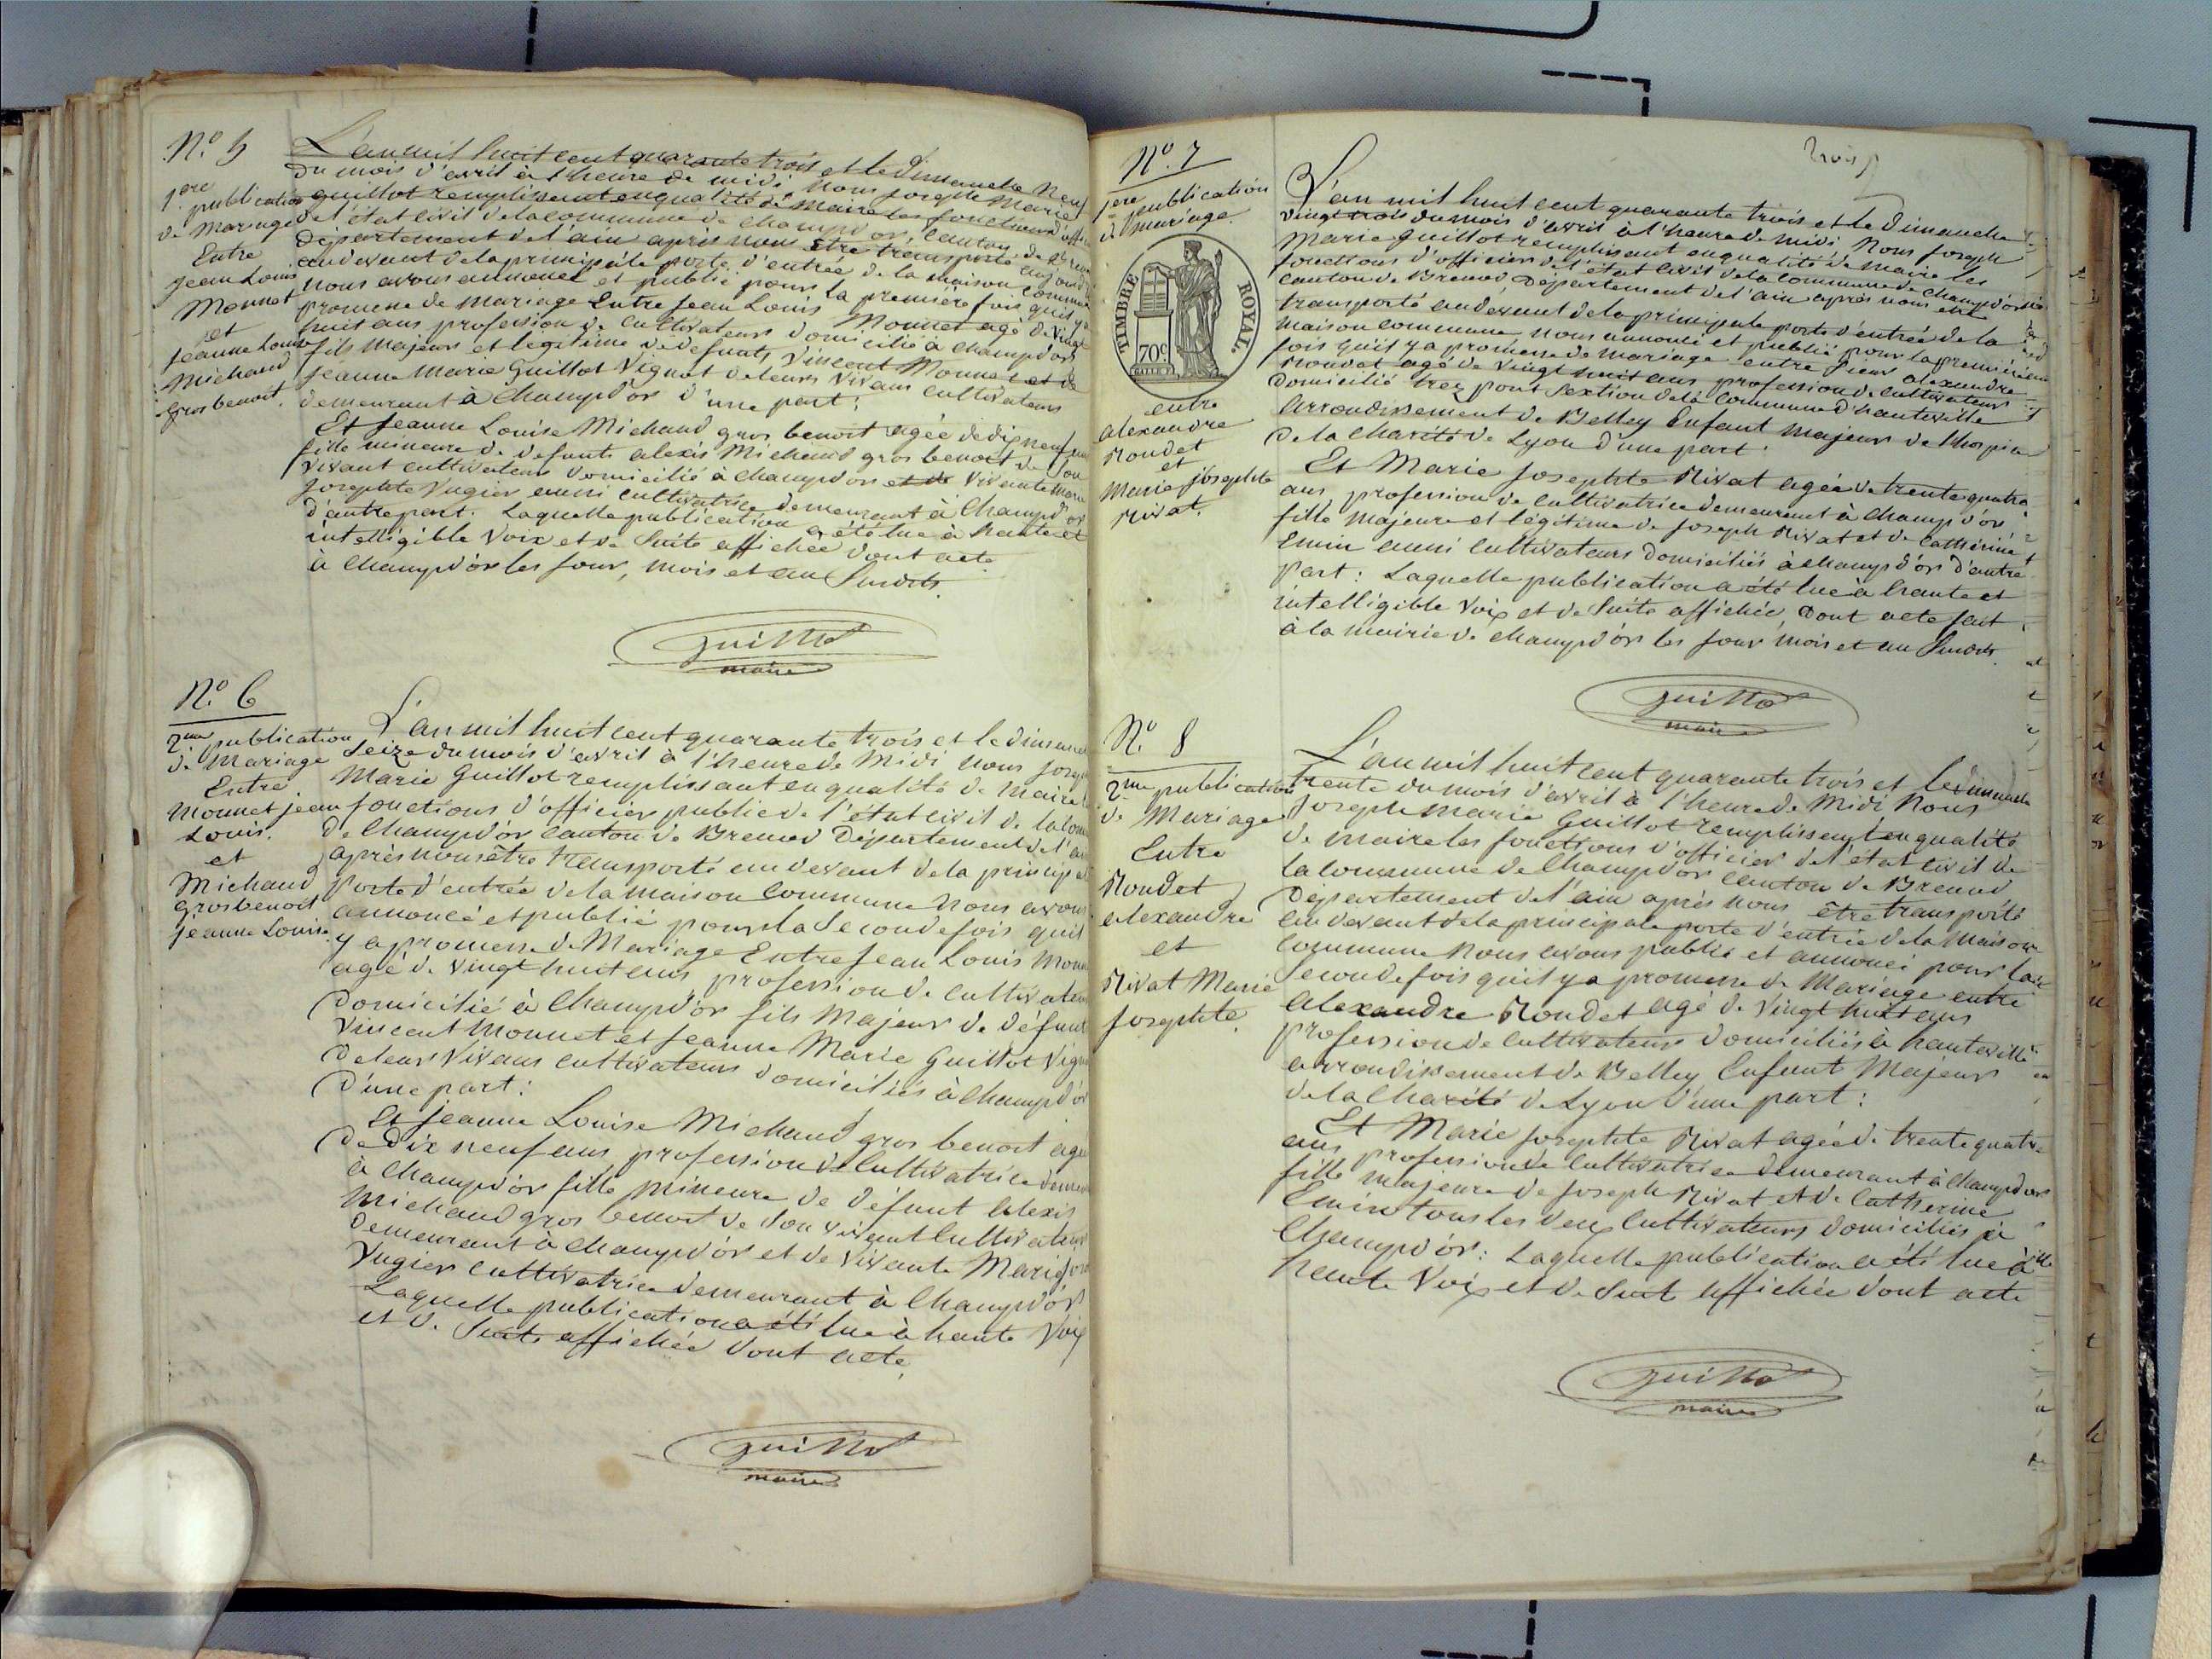 N.º 5
1ere publication
de Mariage
Entre
Jean Louis
Monnet
et
Jeanne Louise
Michaud
Gros benoit.
L'an mil huit cent quarante trois et le dimanche Neuf
du mois d'avril à l'heure de midi, Nous Joseph Marie
guillot remplissant en qualité de Maire les fonctions d'offi
de l'état civil de la commune de Champdor, Canton de Bren
Département de l'ain après nous être transporté
au devant de la principale porte d'entrée de la maison commun
Nous avons annoncé et publié pour la première fois qu'il y a
promesse de Mariage Entre Jean Louis Monnet agé de Vingt
huit ans profession de Cultivateur domicilié à Champdor
fils Majeur et légitime de defunts Vincent Monnet et de
Jeanne Marie Guillot Vignat de leurs Vivans cultivateurs
demeurant à Champd'or d'une part:
Et Jeanne Louise Michaud gros benoit agée de dix neuf ans
fille mineure de defunt alexis Michaud gros benoit de Son
Vivant cultivateur domicilié à Champdor et de Vivante Marie
Josephte Vugier aussi Cultivatrice demeurant à Champd'or
d'autre part. Laquelle publication a été lue à haute et
intelligible Voix et de Suite affichée dont acte
à Champd'or les jour, mois et an Susdits.
guillot
maire
N.º 6
2me publication
de Mariage
Entre
Monnet jean
Louis.
et
Michaud
Gros benoit
Jeanne Louise.
L'an mil huit cent quarante trois et le dimanche
Seize du mois d'avril à l'heure de Midi Nous Joseph
Marie Guillot remplissant en qualité de Maire les
fonctions d'officier public de l'état civil de la com
de Champd'or Canton de Brenod Département de l'ain
après nous être transporté au devant de la principale
Porte d'entrée de la maison Commune Nous avons
annoncé et publié pour la Seconde fois qu'il
y a promesse de Mariage Entre Jean Louis Monn
agé de Vingt huit ans, profession de Cultivateur
Domicilié à Champd'or fils Majeur de défunt
Vincent Monnet et Jeanne Marie Guillot Vign
de leur Vivans cultivateurs domiciliés à Champd'or
D'une part:
Et Jeanne Louise Michaud gros benoit agée
de dix neuf ans, profession de Cultivatrice demeu
à Champd'or fille Mineure de défunt Alexis
Michaud gros benoit de Son vivant Cultivateur
demeurant à Champd'or et de Vivante Marie Jos
Vugier Cultivatrice demeurant à Champd'or
Laquelle publication a été lue à haute Voix
et de Suite affichée dont acte,
guillot
maire
trois
N.º 7
1ere publication
de mariage
TIMBRE ROYAL.
70c.
entre
alexandre
Rondet
et
Marie josephte
Rivat.
L'an mil huit cent quarante trois et le dimanche
Vingt trois du mois d'avril à l'heure de midi Nous Joseph
Marie Guillot remplissant en qualité de Maire les
fonctions d'officier de l'état civil de la commune de Champd'or
Canton de Brenod, Département de l'ain après nous etre
transporté au devant de la principale porte d'entrée de la
Maison commune nous annoncé et publié pour la première
fois qu'il y a promesse de mariage entre Sieur alexandre
Rondet agé de Vingt huit ans profession de cultivateur
domicilié trez pont Sextion de la Commune d'hauteville
Arrondissement de Belley Enfant Majeur de l'hospice
De la Charité de Lyon d'une part:
Et Marie Josephte Rivat agée de trente quatre
ans profession de Cultivatrice demeurant à Champ d'or
fille Majeure et légitime de Joseph Rivat et de Cathérine
Emin aussi Cultivateurs domiciliés à Champ d'or d'autre
Part: Laquelle publication a été lue à haute et
intelligible Voix et de Suite affichée, dont acte fait
à la mairie de Champd'or les jour mois et an Susdits.
guillot
maire
N.º 8
2me publication
de Mariage
Entre
Rondet
alexandre
et
Rivat Marie
Josephte.
L'an mil huit cent quarante trois et le dimanche
trente du mois d'avril à l'heure de Midi Nous
Joseph Marie Guillot remplissant en qualité
de maire les fonctions d'officier de l'état civil de
la commune de Champd'or Canton de Brenod
Département de l'ain après nous être transporté
au devant de la principale porte d'entrée de la Maison
Commune Nous avons publié et annoncé pour la
Seconde fois qu'il y a promesse de Mariage entre
Alexandre Rondet agé de Vingt huit ans
profession de Cultivateur domiciliés à hauteville
arrondissement de Belley Enfant Majeur
de la Charité de Lyon d'une part:
Et Marie Josephte Rivat agée de trente quatre
ans profession de Cultivatrice demeurant à Champdor
fille majeure de Joseph Rivat et de Catherine
Emin tous les deux Cultivateurs domiciliés à
Champd'or: Laquelle publication a été lue à
haute Voix et de Suite affichée dont acte
guillot
maire